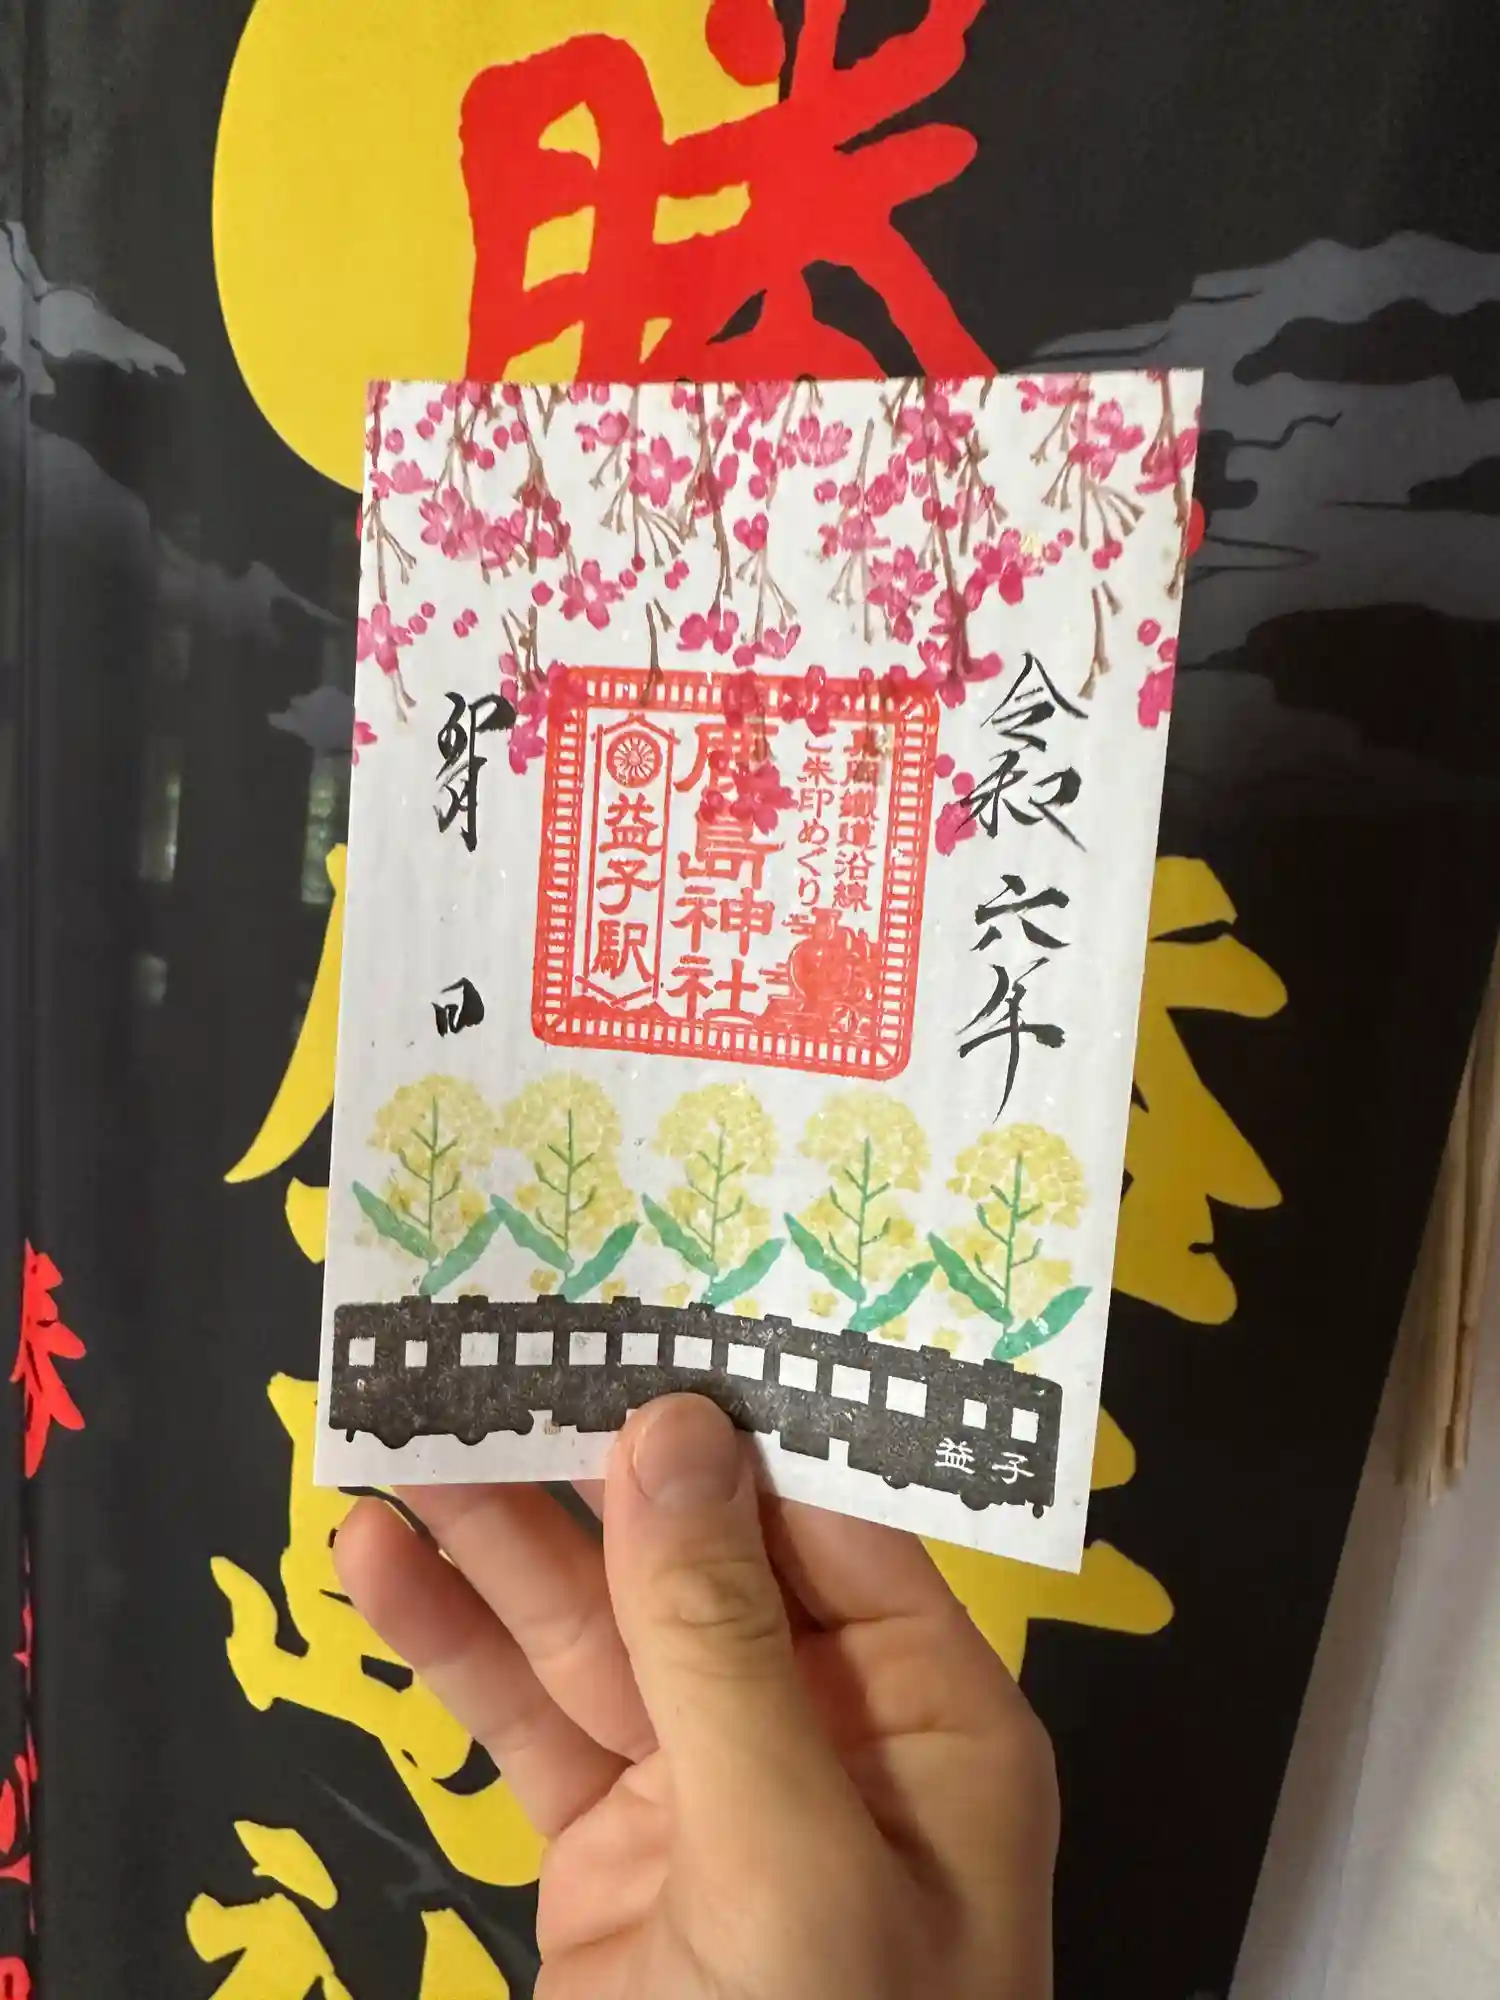 勝
令和六年
真岡鐵道沿線
ご朱印めぐり
鹿島神社
益子駅
月
日
益子